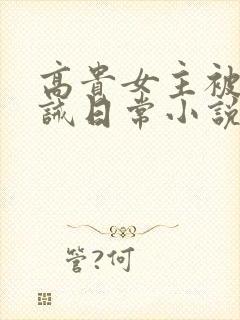 高貴女主被
誡日常小説
管?何